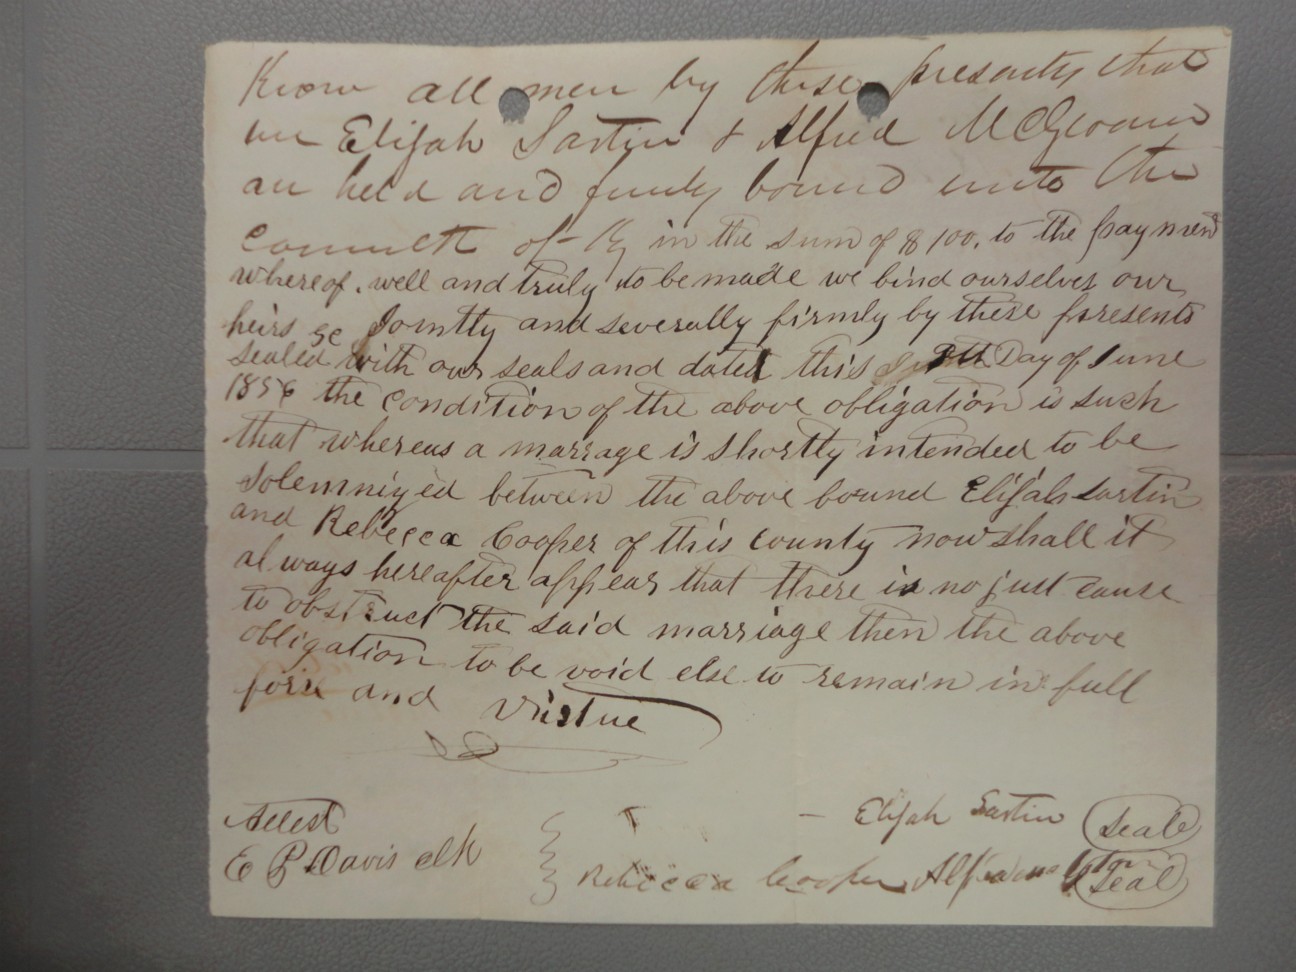 Know all men by these presents that
we Elijah Sartin & Alfred McGlown
are held and firmly bound unto the
Comwlth of Ky in the sum of $100, to the payment
whereof, well and truly to be made we bind ourselves our
heirs &c Jointly and severally firmly by these presents
sealed with our seals and dated this Day of June
1856 the condition of the above obligation is such
that whereas a marriage is shortly intended to be
solemnized between the above bound Elijah Sartin
and Rebecca Cooper of this county now shall it
always hereafter appear that there is no just cause
to obstruct the said marriage then the above
obligation to be void else to remain in full
force and Virtue
Attest
E P Davis clk
Elijah Sartin Seal
Rebecca Cooper Seal